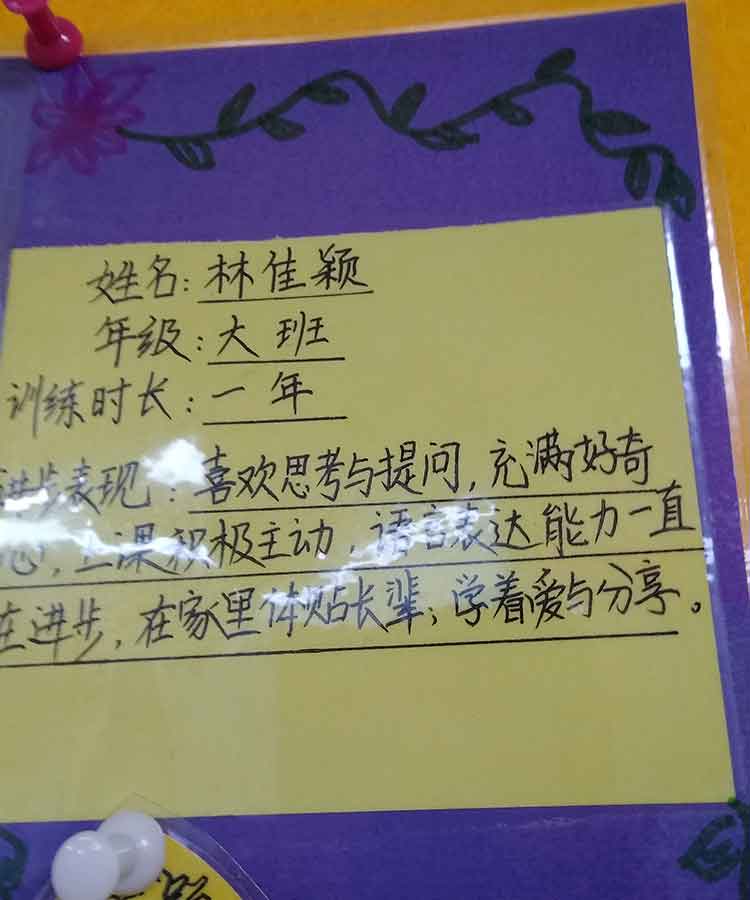 姓名:林佳颖
年级:大班
训练时长:一年
进步表现:喜欢思考与提问,充满好奇
心,上课积极主动,语言表达能力一直
在进步,在家里体贴长辈,学着爱与分享。